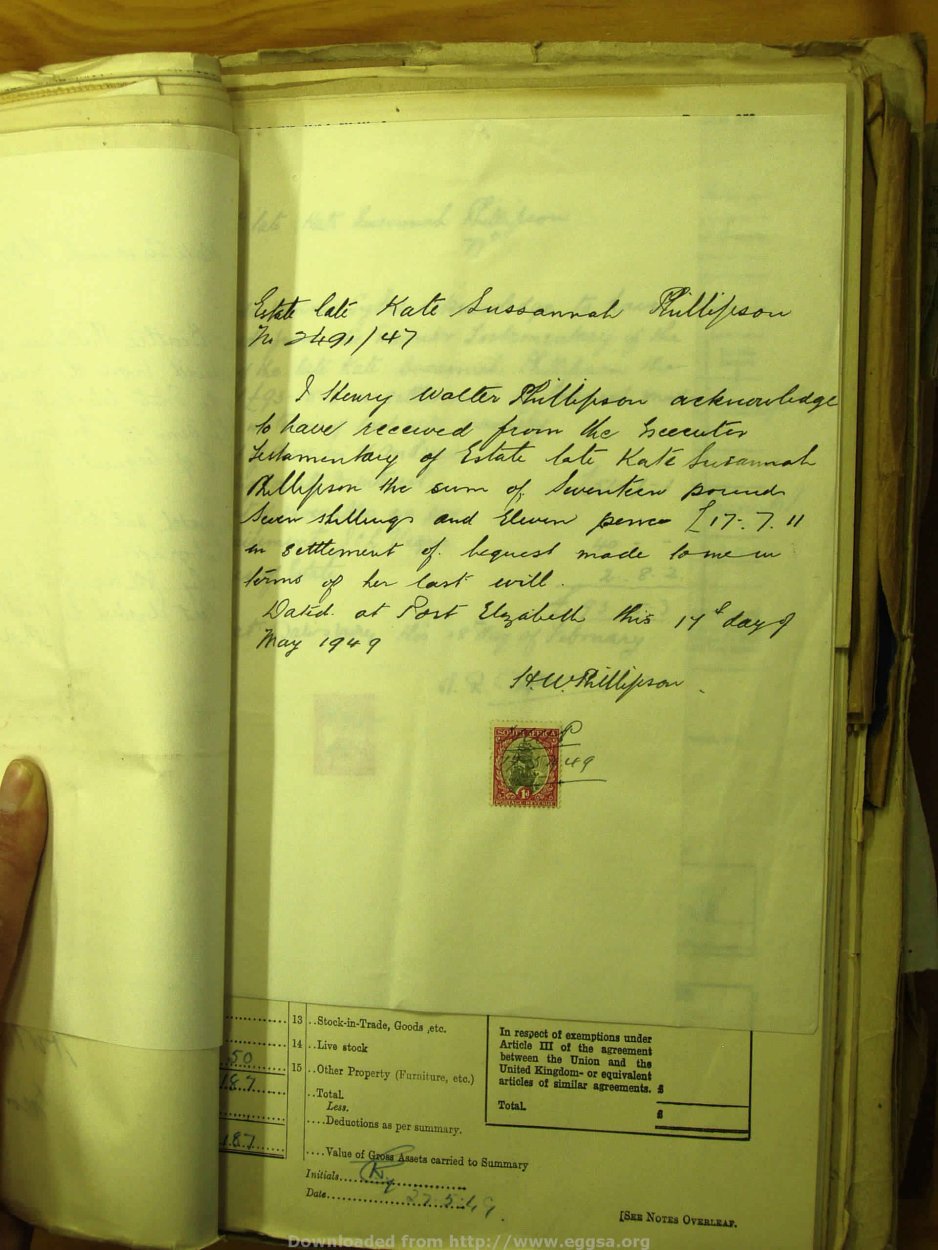 Estate late Kate Sussannah Phillipson
No 2491/47
I Henry Walter Phillipson acknowledge
to have received from the Executor
Testamentary of Estate late Kate Susannah
Phillipson the sum of Seventeen pounds
Seven shillings and Eleven pence £17.7.11
in settlement of bequest made to me in
terms of her last will.
Dated at Port Elizabeth this 17th day of
May 1949
H.W. Phillipson.
SOUTH AFRICA
P
49
1D
POSTAGE REVENUE
13 ..Stock-in-Trade, Goods ,etc.
14 ..Live stock
50
15 ..Other Property (Furniture, etc.)
187
..Total.
Less.
....Deductions as per summary.
187
....Value of Gross Assets carried to Summary
Initials
Date 27.5.49.
In respect of exemptions under
Article III of the agreement
between the Union and the
United Kingdom- or equivalent
articles of similar agreements. £
Total. £
[SEE NOTES OVERLEAF.
Downloaded from http://www.eggsa.org